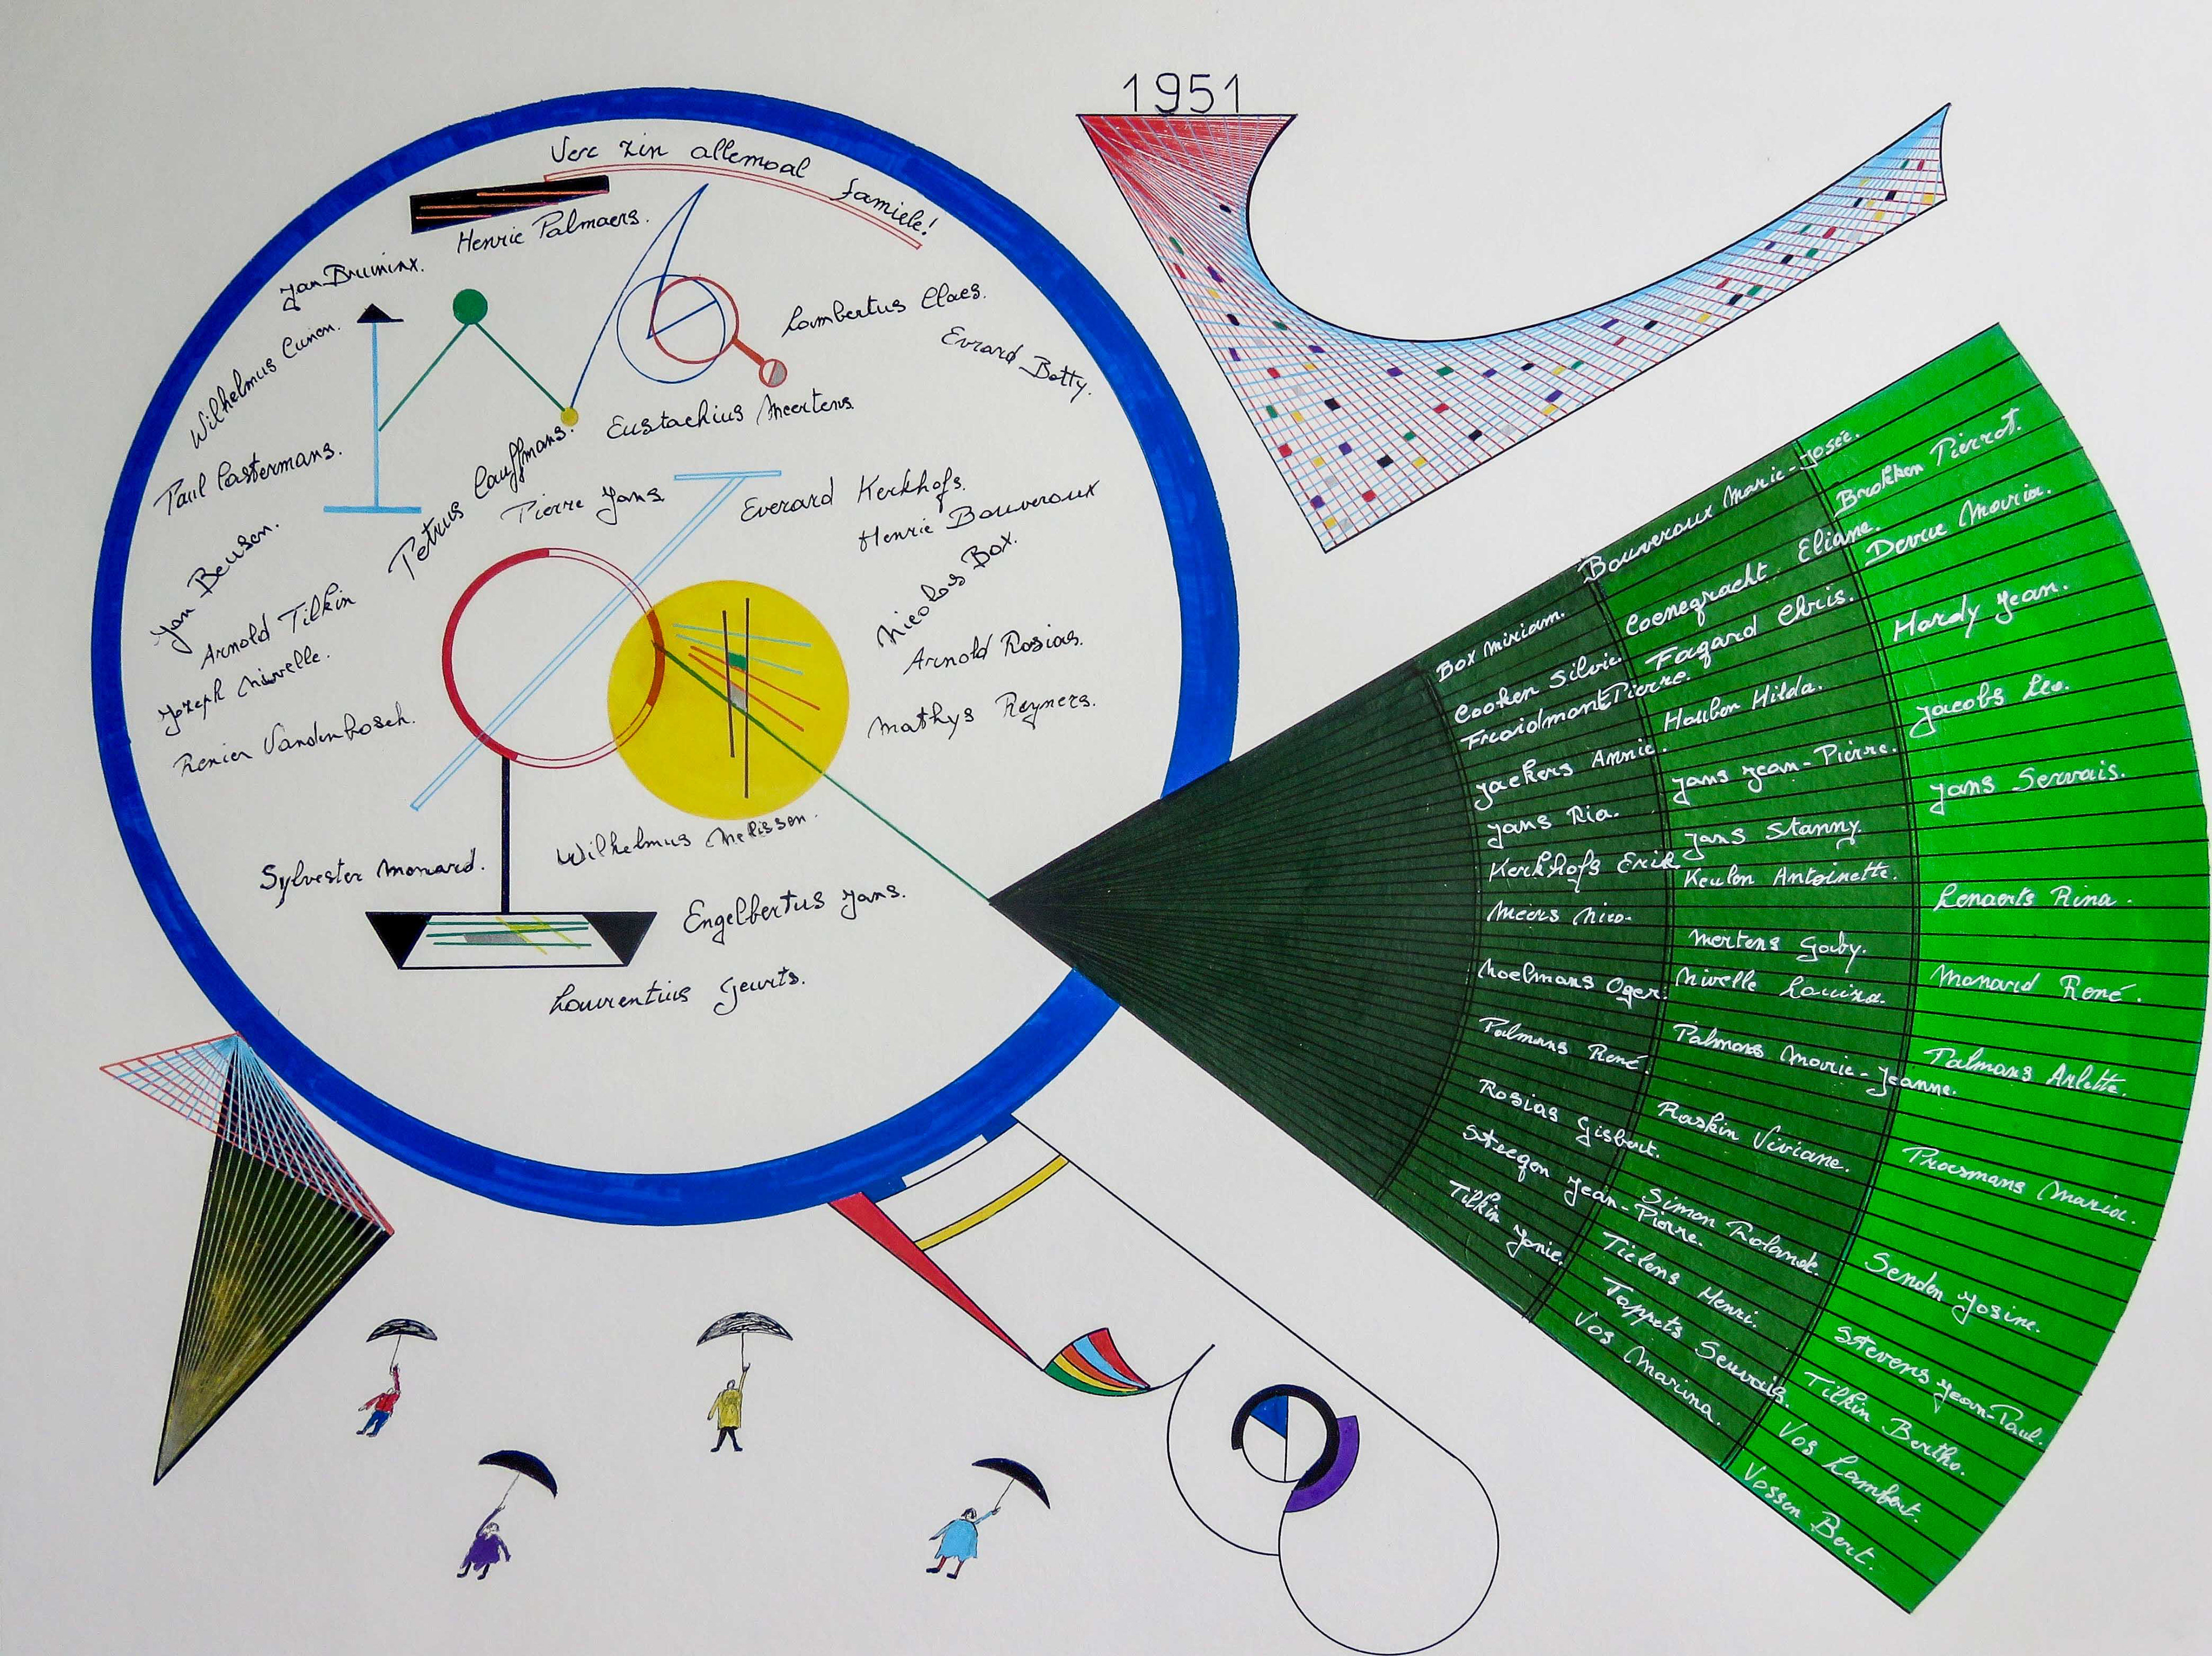 1951
Verc zin allemoal famiele!
Henrie Palmaers.
Jan Bruninx.
Wilhelmus Cunen.
Lambertus Claes.
Evrard Betty.
Eustachius Meertens.
Paul Castermans.
Petrus Cauffmans.
Pierre Jans.
Everard Kerkhofs.
Henrie Bouveroux
Nicolas Box.
Jan Beusen.
Arnold Tilkin
Joseph Nivelle.
Arnold Rosias.
Renier Vandenbosch.
Mathys Reyners.
Wilhelmus Melissen.
Sylvester Monard.
Engelbertus Jans.
Laurentius Geurts.
Box Miriam.
Cooken Silvie.
Froidmont Pierre.
Jackers Annie.
Jans Ria.
Kerkhofs Erik
Meers Nico.
Noelmans Oger.
Palmans René.
Rosias Gisbert.
Steegen Jean-Pierre.
Tilkin Jonie.
Bouveroux Marie-Josée.
Coenegracht Eliane.
Fagard Chris.
Houben Hilda.
Jans Jean-Pierre.
Jans Stanny.
Keulen Antoinette.
Mertens Gaby.
Nivelle Louisa.
Palmans Marie-Jeanne.
Raskin Viviane.
Simon Roland.
Tielens Henri.
Tappets Servais.
Vos Marina.
Brokken Pierrot.
Devue Maria.
Hardy Jean.
Jacobs Leo.
Jans Servais.
Lenaerts Rina.
Monard René.
Palmans Arlette.
Proesmans Maria.
Senden Josine.
Stevens Jean-Paul.
Tilkin Bertho.
Vos Lambert.
Vossen Bert.